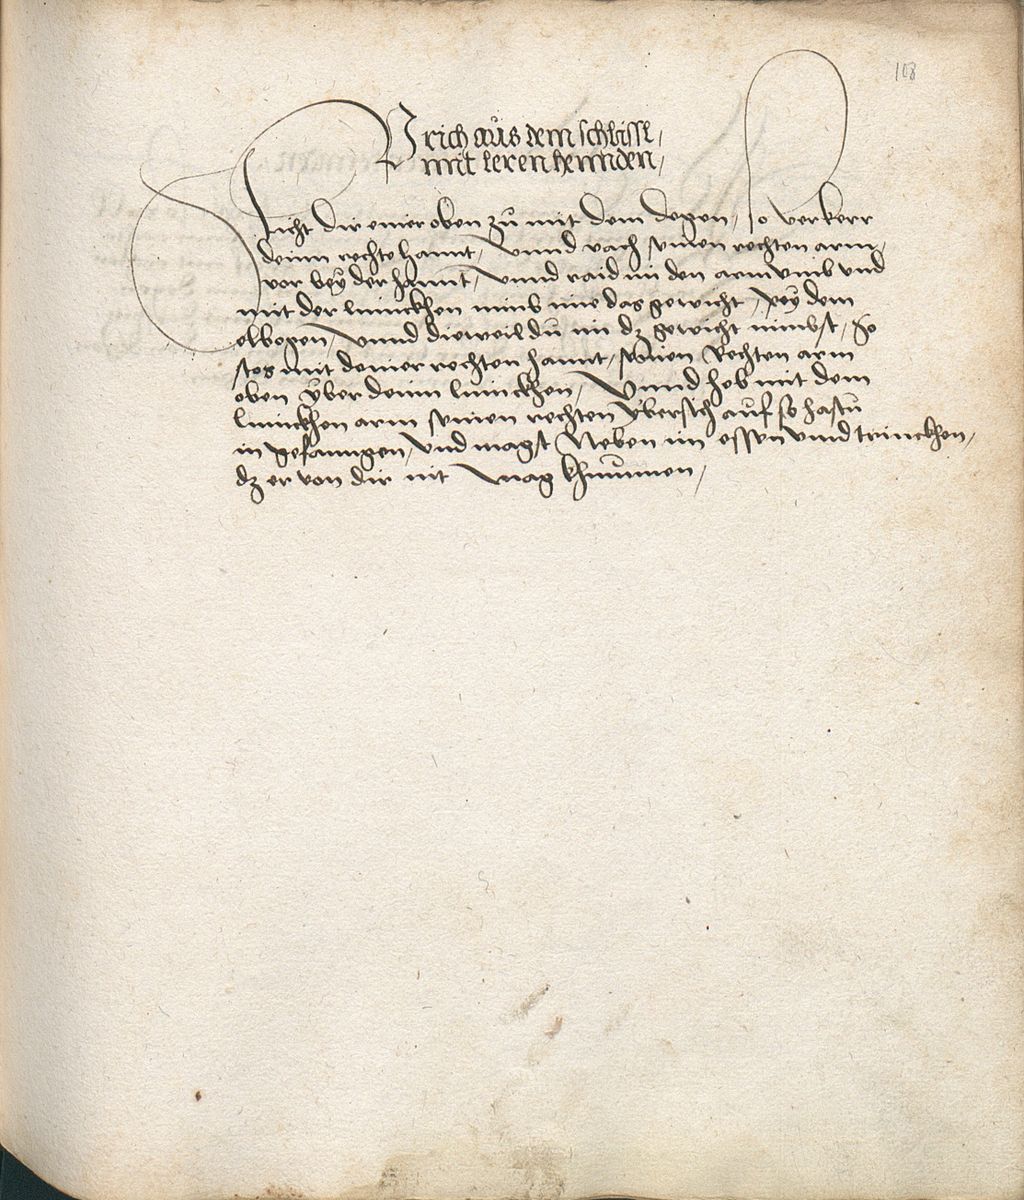 108
Prich aus dem schlissl,
mit leren hennden,
Sticht dir einer oben zů mit dem degen, so verkerr
deinn rechte hannt, Vnnd vach seinen rechten arm,
vor beÿ der hannt, vnnd raid im den arm vmb vnd
mit der linnckhen nimb ime das gewicht, peÿ dem
elbogen, Vnnd dieweil dů im dz gewicht nimbst, So
stos mit deiner rechten hannt, seinen Rechten arm
oben ÿber deinn linnckhen, Vnnd heb mit dem
linnckhen arm seinen rechten ÿbersich aůf so hastů
in gefanngen, vnd magst Neben im essen vnnd trinckhen,
dz er von dir nit mag khůmmen,